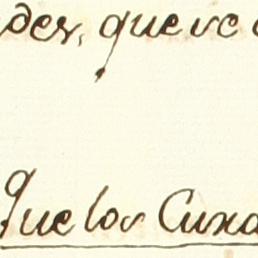 des, que se
que los Cura